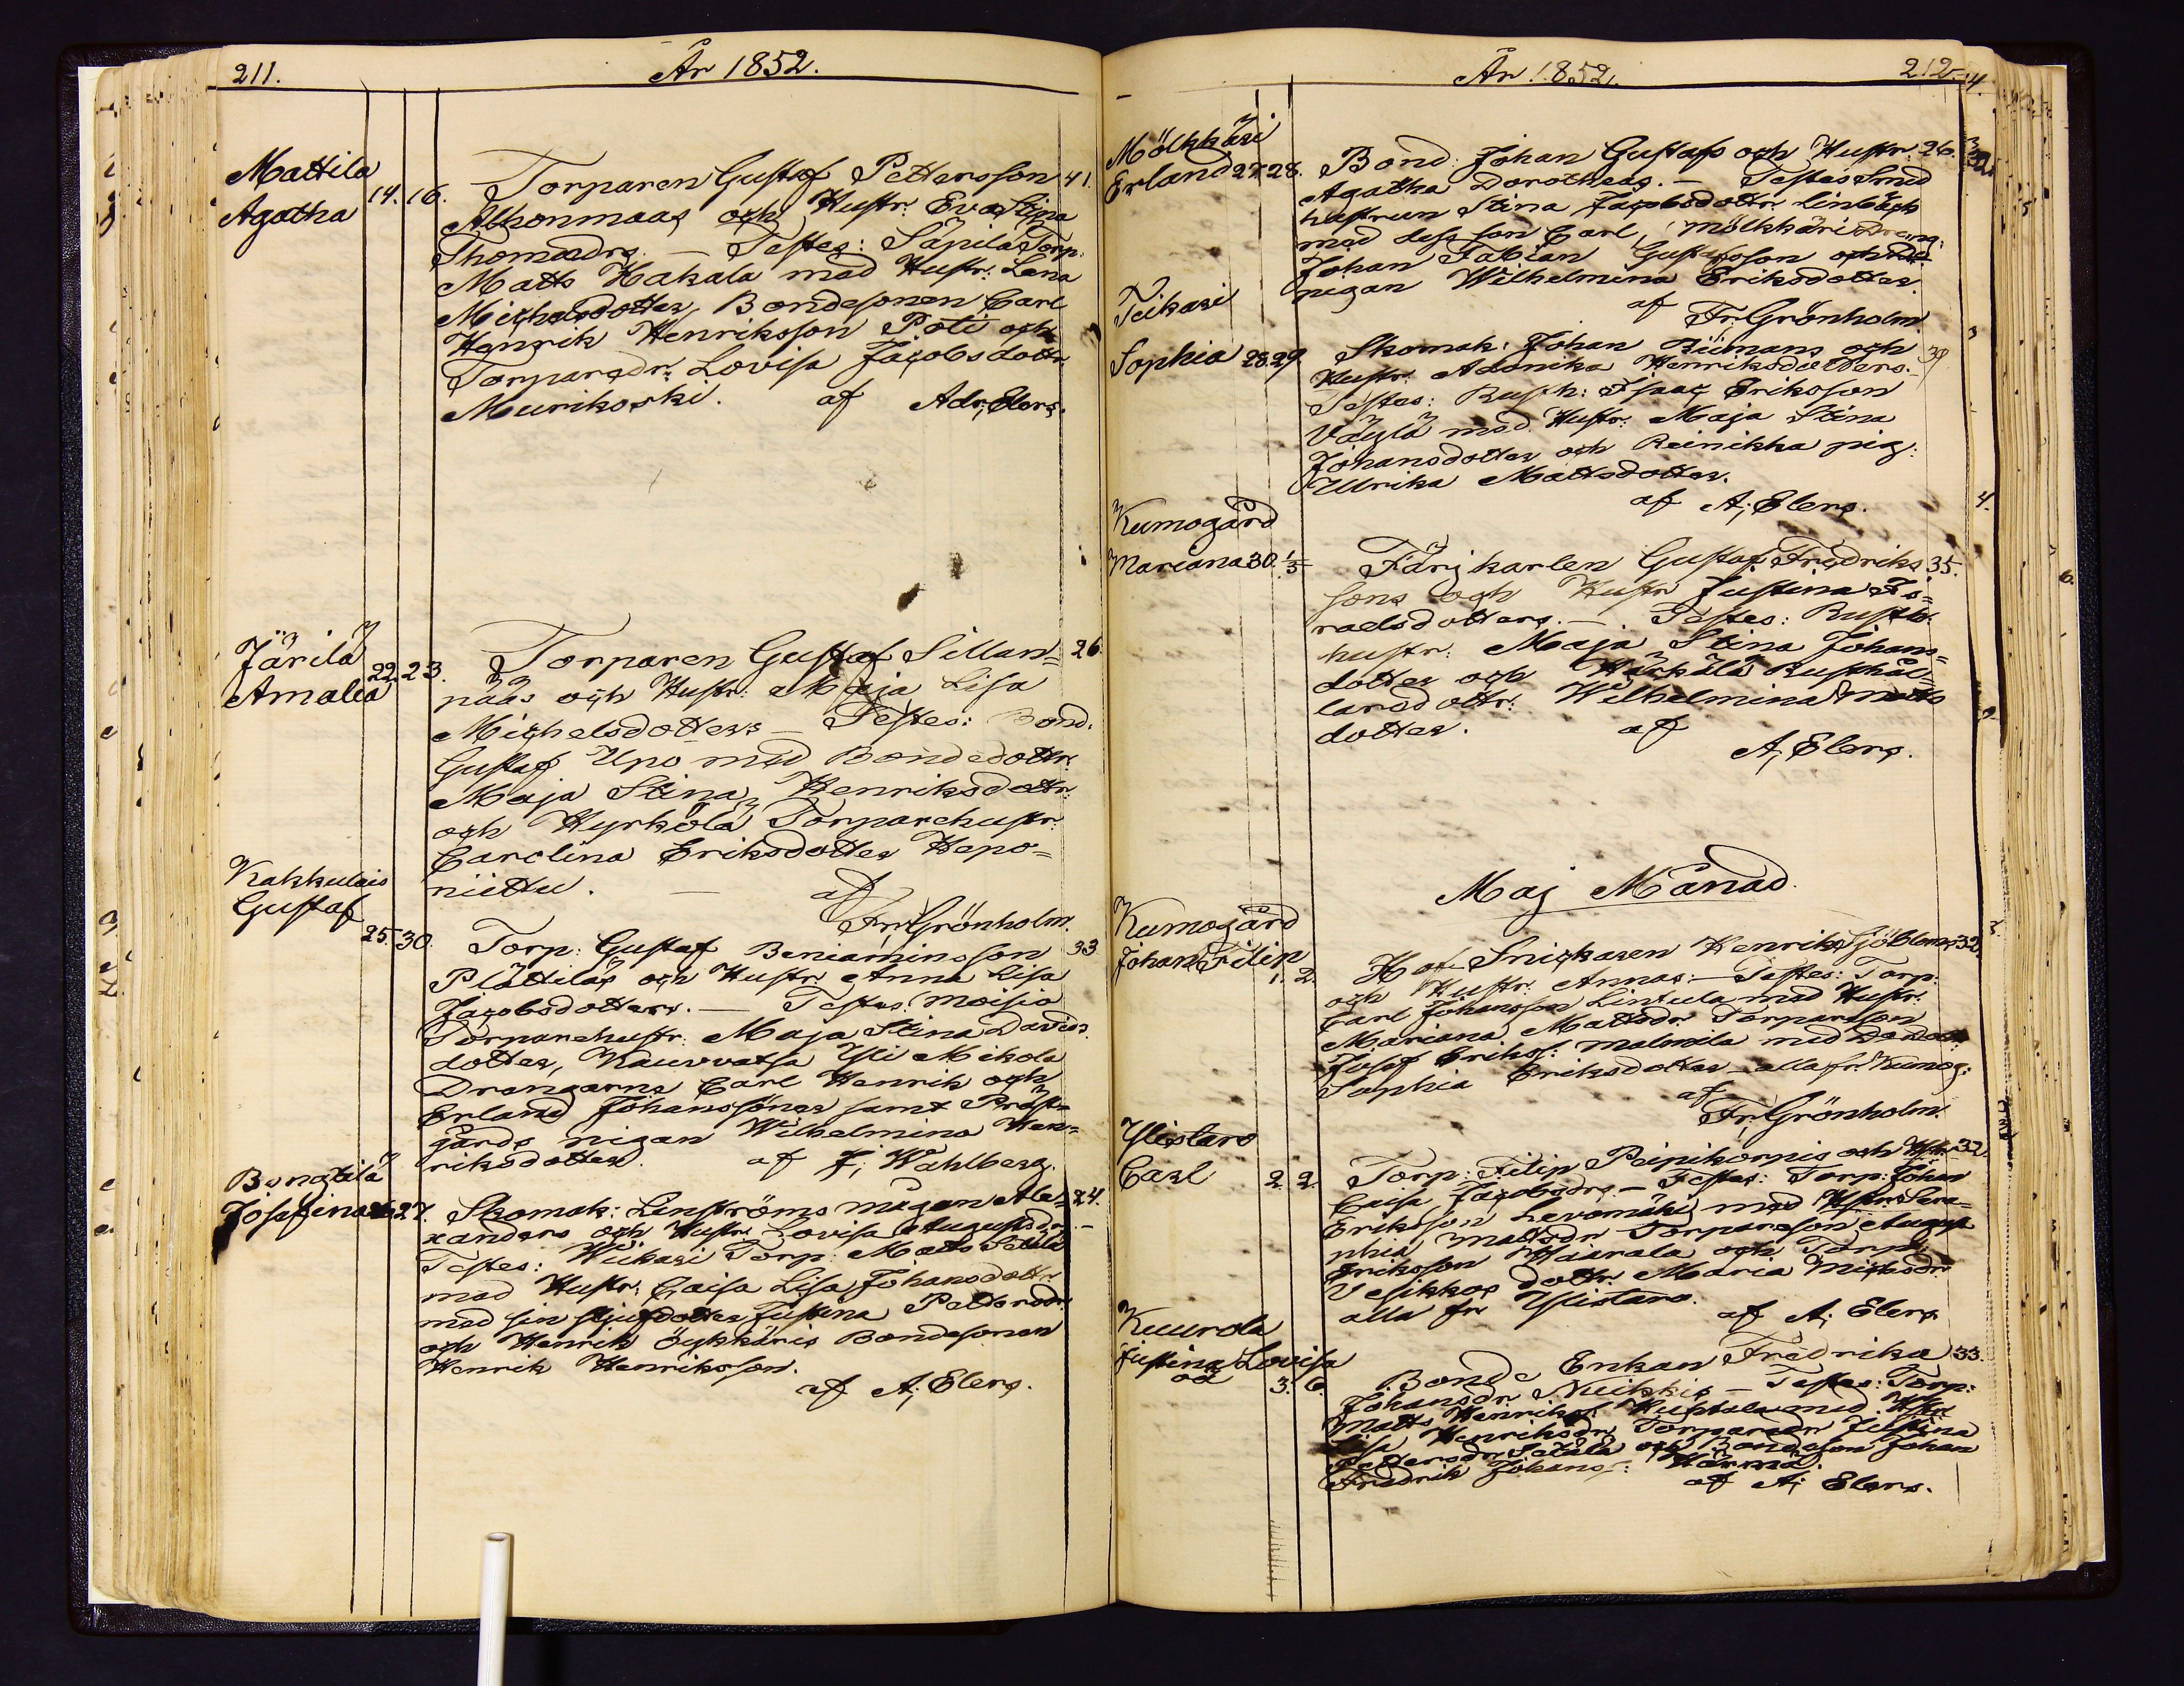 211.
År 1852.
Mattila
Agatha 14. 16. Torparen Gustaf Pettersson 41.
Alhonmaas och Hustr: Eva Stina
Thomasdrs. — Testes: Säpilä Torp:
Matts Hakala med Hustr: Lena
Michelsdotter, Bondesonen Carl
Henrik Henriksson Poti och
Torparedr: Lovisa Jacobsdottr
Murikoski. af Adr; Elers.
Järilä
Amalia 22. 23. Torparen Gustaf Sillan= 26
pääs och Hustr: Maja Lisa
Michelsdotters — Testes: Bond:
Gustaf Upo med Bondedottr.
Maja Stina Henriksdottr:
och Hyrkölä Torparehustr:
Carolina Eriksdotter Hepo=
niittu. — af
Fr: Grönholm.
Kakkulais
Gustaf
25. 30. Torp: Gustaf Beniaminsson 33
Plättiläs och Hustr: Anna Lisa
Jacobsdotters. — Testes: Moisio
Torparehustr: Maja Stina Davids
dotter, Kauvvatsa Yli Mikola
Drengarne Carl Henrik och
Erland Johanssöner samt Präst=
gårds pigan Wilhelmina Hen=
riksdotter. af F; Wahlberg.
Bengtilä
Josefina 26. 27. Skomak: Lenströms mågen Ale= 24.
xanders och Hustr: Lovisa Augustsdr.
Testes: Wiikari Torp: Matts Setälä
med Hustr: Caisa Lisa Johansdottr
med sin stjufdotter Justina Pettersdr.
och Henrik Öykkäris Bondesonen
Henrik Henriksson.
af A; Elers.
År 1852.
212.
Mölkkäri
Erland 27. 28. Bond: Johan Gustafs och Hustr: 26.
Agatha Dorotheas. — Testes Smed
hustrun Stina Jacobsdottr Linbäck
med dess son Carl, Mölkkäri Dreng:
Johan Fabian Gustafsson och
pigan Wilhelmina Eriksdotter.
af
Fr: Grönholm
Teikari
Sophia 28. 29. Skomak: Johan Riimans och 39
Hustr: Adonika Henriksdotters. —
Testes: Rusth: Isaac Eriksson
Väylä med Hustr: Maja Stina
Johansdotter och Reinikka pig:
Ulrika Mattsdotter.
af A; Elers.
Kumogård
Mariana 30. 1/5 Färjkarlen Gustaf Fredriks 35.
sons och Hustr Justina Is=
raelsdotters. — Testes: Rusth.
hustr: Maja Stina Johans=
dotter och Härkälä Rusthål=
laredottr: Wilhelmina Matts
dotter. af
A; Elers.
Maj Månad.
Kumogård
Johan Filip
1. 2. Hof Snickaren Henrik Sjöbloms 32.
och Hustr: Annas: — Testes: Torp:
Carl Johansson Lintula med Hustr:
Mariana Mattsdr. Torpareson
Josef Eriks: Malmila med
Sophia Eriksdotter — alla fr. Kumog:
af
Fr: Grönholm.
Ylistaro
Carl 2. 2. Torp: Filip Peipikornis och Hstr: 32.
Caisa Jacobsdrs. — Testes: Torp: Johan
Eriksson Levomäki med Hstr: Sera=
phia Mattsdr Torpareson August
Eriksson Hiarala och Torp:
Vesikkos dottr. Maria Michsdr.
alla fr Ylistaro.
af A; Elers
Kuurola
Justina Lovisa
oä 3. 6. Bonde Enkan Fredrika 33.
Johansdr. Nuikkis — Testes: Torp:
Matts Henriks: Huhtala med Hstr.
Lisa Henriksdr. Torparedr Justina
Pettersdr Setälä och Bondeson Johan
Fredrik Johans: Härmä.
af A; Elers.